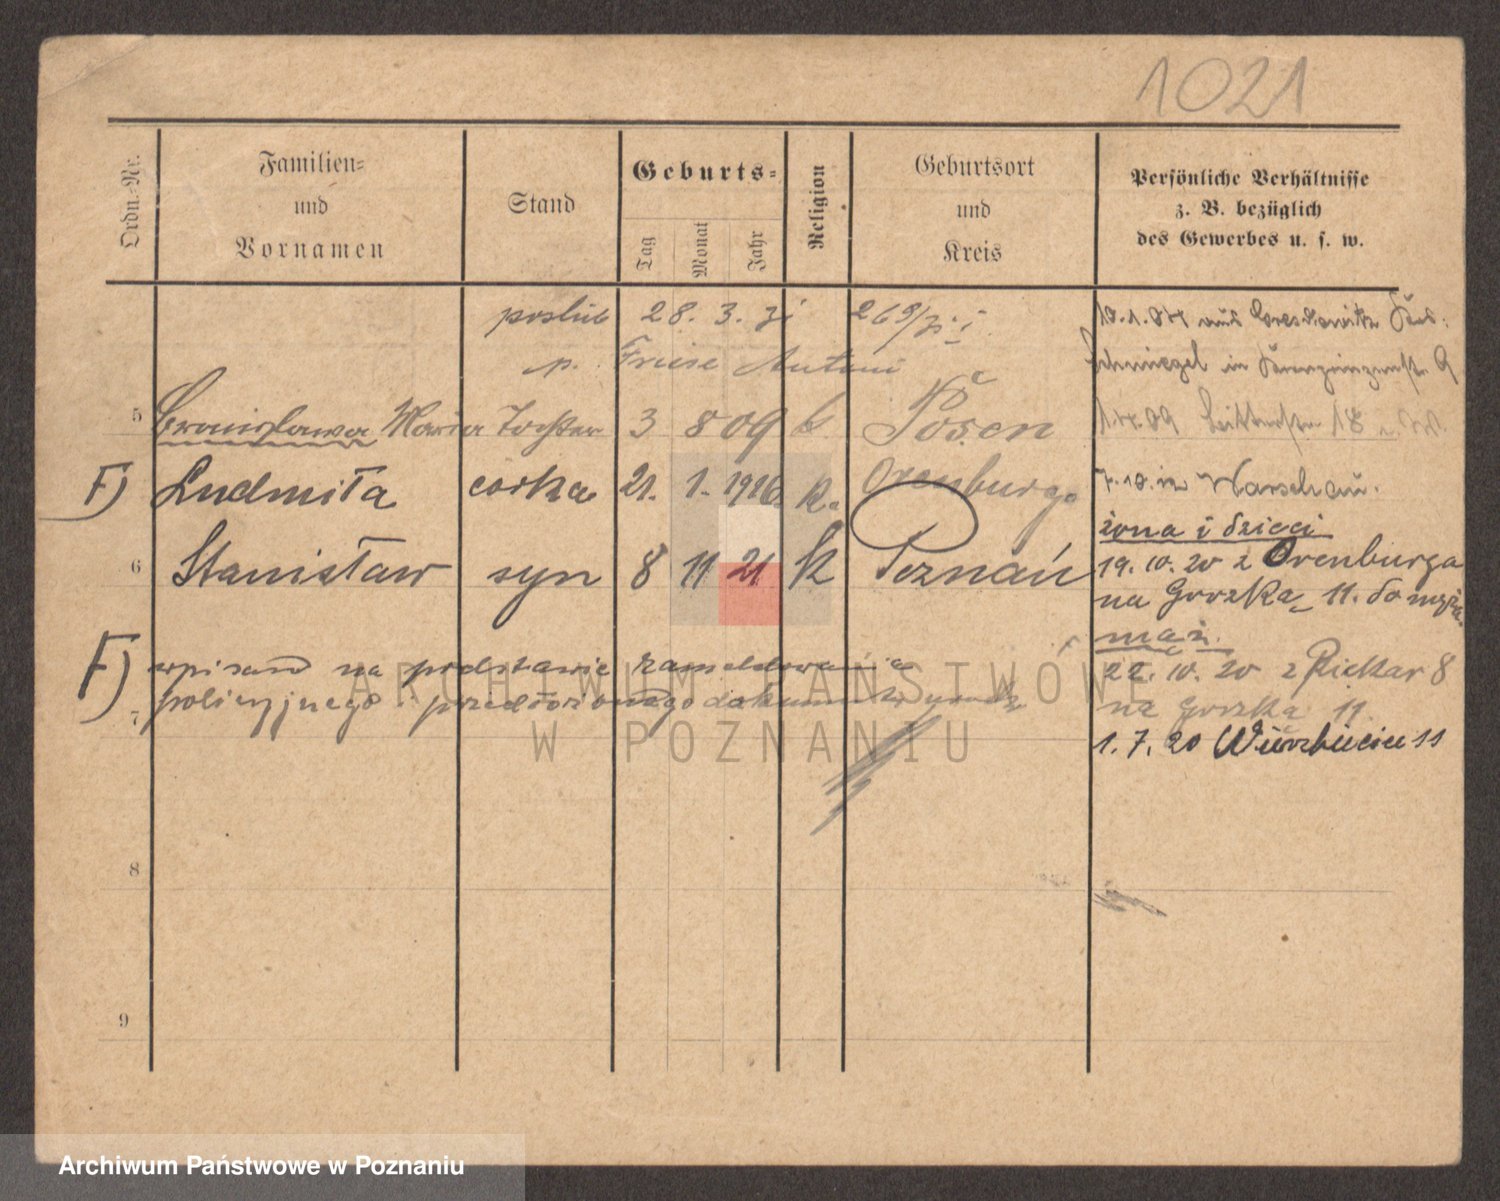 1021
Ordn.-Nr.
Familien-
und
Vornamen
Stand
Geburts-
Tag
Monat
Jahr
Religion
Geburtsort
und
Kreis
Persönliche Verhältnisse
z. B. bezüglich
des Gewerbes u. s. w.
poslub 28. 3. 31 269/31 I
p. Friese Antoni
10.1.04 aus
Schmiegel in 9
5 Bronisława Maria Tochter 3 8 09 k Posen
1.4.09 18
F) Ludmiła córka 21. 1. 1916. k. Orenburg
7.10.12 Warschau.
żona i dzieci
6 Stanisław syn 8 11 21 k Poznań
19. 10. 20 z Orenburga
na Grozka 11. do męża.
mąż.
F) wpisano na podstawie zameldowania
22. 10. 20 z Piekar 8
policyjnego i przedłożonego
na Grozka 11
7
1. 7. 20 11
8
9
ARCHIWUM PAŃSTWOWE
W POZNANIU
Archiwum Państwowe w Poznaniu